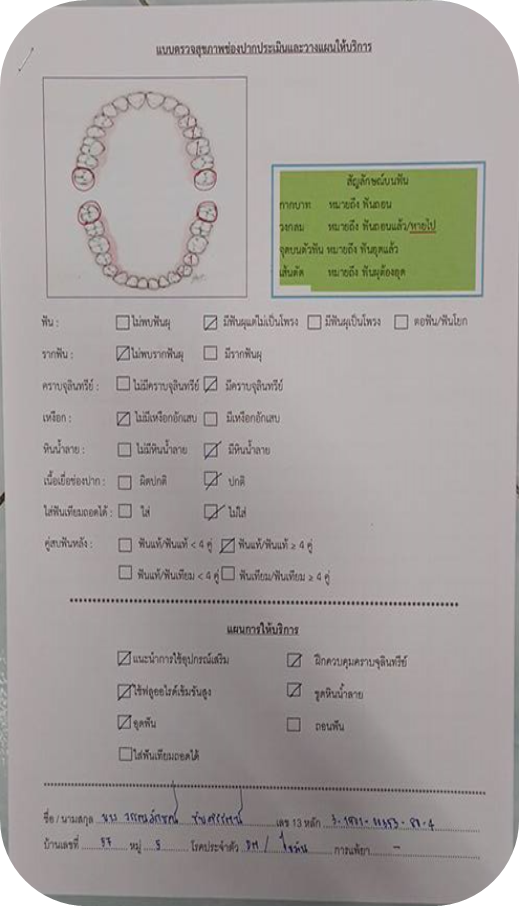 แบบตรวจสุขภาพช่องปากประเมินและวางแผนให้บริการ
สัญลักษณ์บนฟัน
กากบาท หมายถึง ฟันถอน
วงกลม หมายถึง ฟันถอนแล้ว/หายไป
จุดบนตัวฟัน หมายถึง ฟันอุดแล้ว
เส้นตัด หมายถึง ฟันผุต้องอุด
ฟัน : ไม่พบฟันผุ มีฟันผุแต่ไม่เป็นโพรง มีฟันผุเป็นโพรง ตอฟัน/ฟันโยก
รากฟัน : ไม่พบรากฟันผุ มีรากฟันผุ
คราบจุลินทรีย์ : ไม่มีคราบจุลินทรีย์ มีคราบจุลินทรีย์
เหงือก : ไม่มีเหงือกอักเสบ มีเหงือกอักเสบ
หินน้ำลาย : ไม่มีหินน้ำลาย มีหินน้ำลาย
เนื้อเยื่อช่องปาก : ผิดปกติ ปกติ
ใส่ฟันเทียมถอดได้ : ใส่ ไม่ใส่
คู่สบฟันหลัง : ฟันแท้/ฟันแท้ < 4 คู่ ฟันแท้/ฟันแท้ ≥ 4 คู่
ฟันแท้/ฟันเทียม < 4 คู่ ฟันเทียม/ฟันเทียม ≥ 4 คู่
แผนการให้บริการ
แนะนำการใช้อุปกรณ์เสริม ฝึกควบคุมคราบจุลินทรีย์
ใช้ฟลูออไรด์เข้มข้นสูง ขูดหินน้ำลาย
อุดฟัน ถอนฟัน
ใส่ฟันเทียมถอดได้
ชื่อ / นามสกุล นาง เลข 13 หลัก
บ้านเลขที่ หมู่ 5 โรคประจำตัว DM / ไขมัน การแพ้ยา -